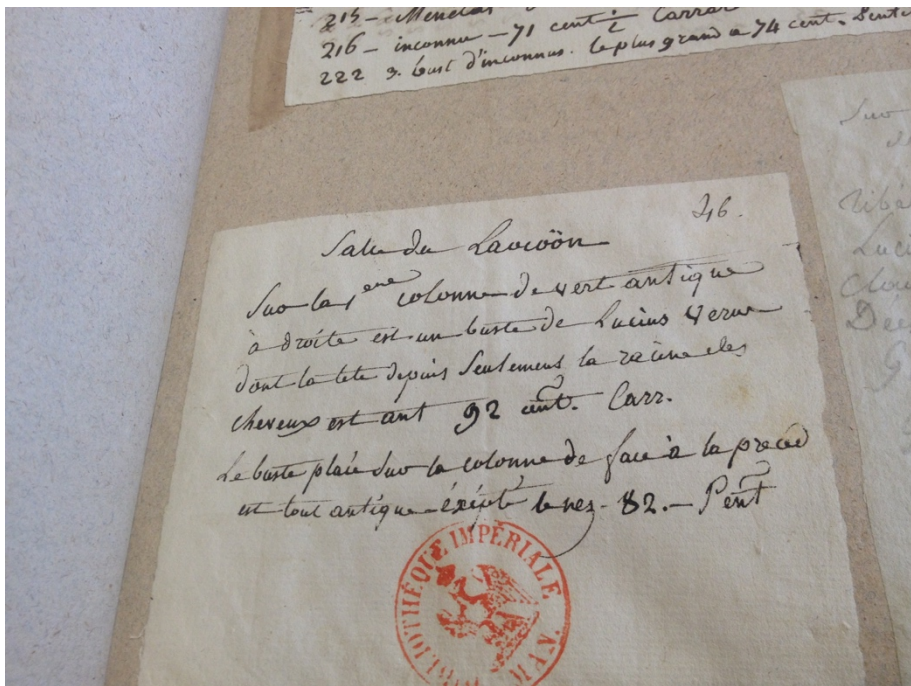 215 – Menelas
216 – inconnu – 71 cent. Carrar
222 3. bust d'inconnus. le plus grand a 74 cent. Pente
246.
Salle du Laocoön
Sur la 1ere colonne de vert antique
à droite est un buste de Lucius Verus
dont la tete depuis Seulement la racine des
cheveux est ant 92 cent. Carr.
Le buste placé Sur la colonne de face à la preced
est tout antique éxcépté le nez - 82. - Pent
BIBLIOTHÉQUE IMPÉRIALE MAN.
Sur
Tibe
Luci
Clau
Dec
G